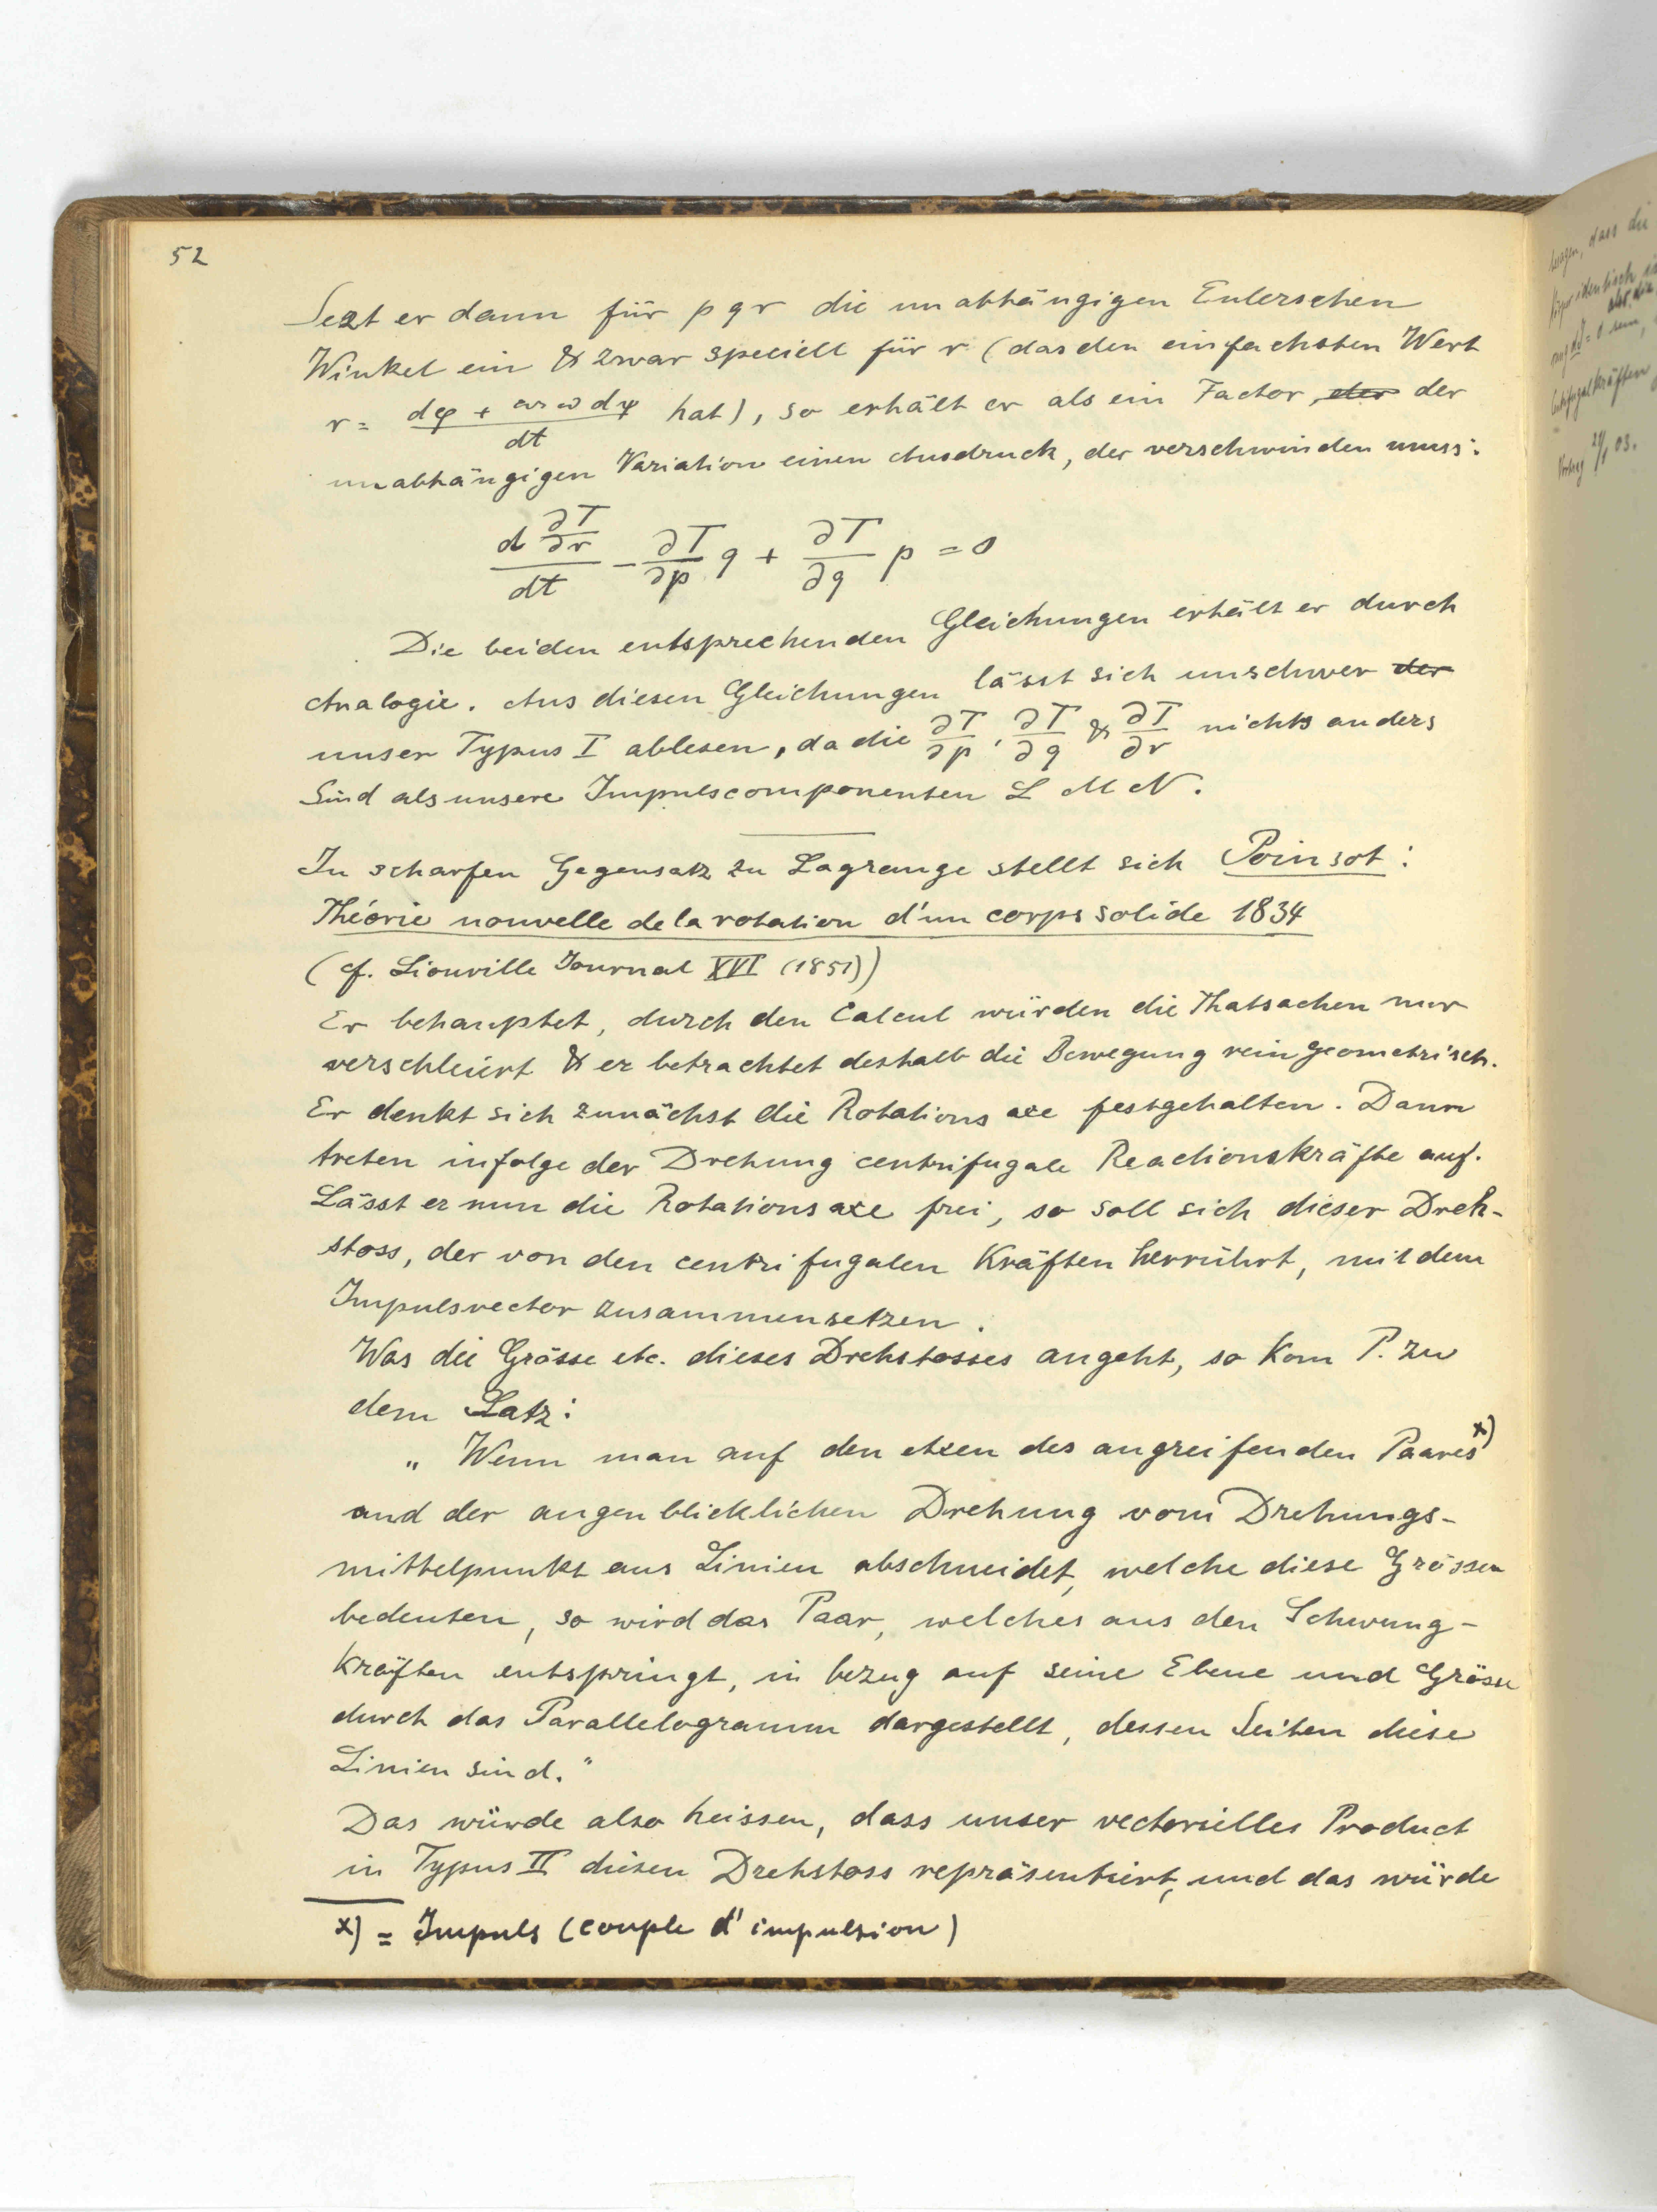 52
Sezt er dann für p q r die unabhängigen Eulerschen
Winkel ein & zwar speciell für r (das den einfachsten Wert
r = (dφ + cos ω dψ)/dt hat), so erhält er als ein Factor, ~~der~~ der
unabhängigen Variation einen Ausdruck, der verschwinden muss:
d ∂T/∂r / dt − ∂T/∂p q + ∂T/∂q p = 0
Die beiden entsprechenden Gleichungen erhält er durch
Analogie. Aus diesen Gleichungen lässt sich unschwer ~~der~~
unser Typus I ablesen, da die ∂T/∂p, ∂T/∂q & ∂T/∂r nichts anders
Sind als unsere Impulscomponenten L M N.
In scharfen Gegensatz zu Lagrange stellt sich Poinsot:
Théorie nouvelle de la rotation d'un corps solide 1834
(cf. Liouville Journal XVI (1851))
Er behauptet, durch den Calcul würden die Thatsachen nur
verschleiert & er betrachtet deshalb die Bewegung rein geometrisch.
Er denkt sich zunächst die Rotationsaxe festgehalten. Dann
treten infolge der Drehung centrifugale Reactionskräfte auf.
Lässt er nun die Rotationsaxe frei, so soll sich dieser Dreh-
stoss, der von den centrifugalen Kräften herrührt, mit dem
Impulsvector zusammensetzen.
Was die Grösse etc. dieses Drehstosses angeht, so kom P. zu
dem Satz:
„ Wenn man auf den Axen des angreifenden Paares x)
und der augenblicklichen Drehung vom Drehungs-
mittelpunkt aus Linien abschneidet, welche diese Grössen
bedeuten, so wird das Paar, welches aus den Schwung-
kräften entspringt, in bezug auf seine Ebene und Grösse
durch das Parallelogramm dargestellt, dessen Seiten diese
Linien sind."
Das würde also heissen, dass unser vectorielles Product
in Typus II diesen Drehstoss repräsentiert, und das würde
x) = Impuls (couple d'impulsion)
dass die
identisch
kräften
03.